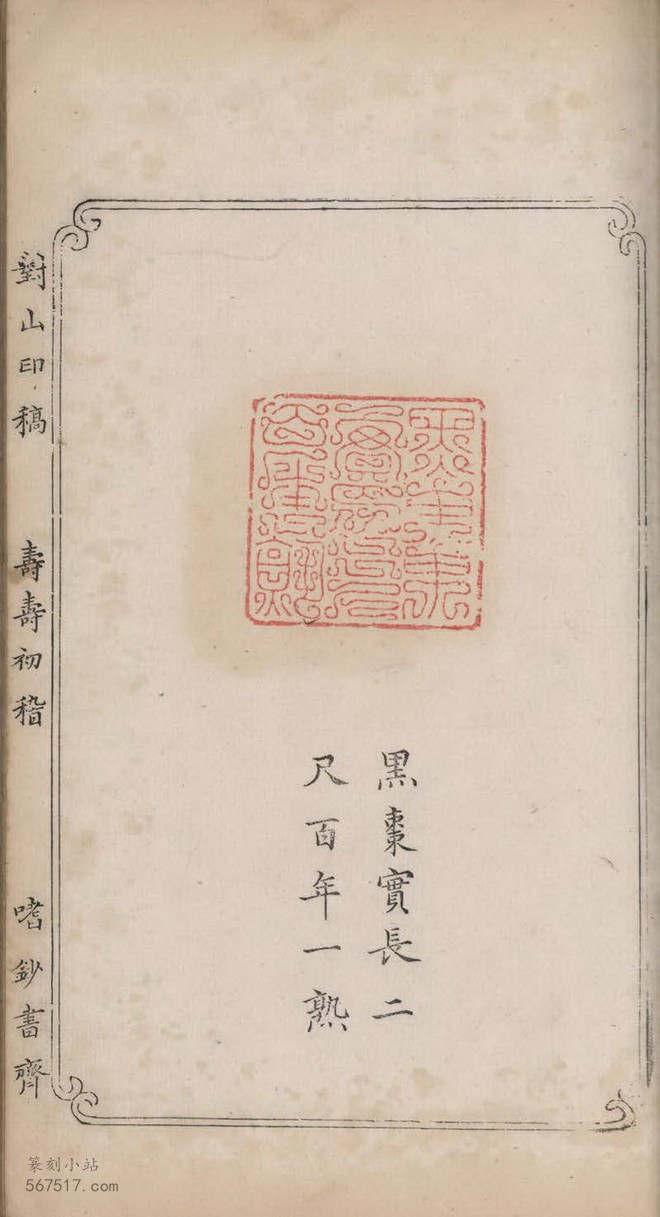 黒棗實長二
尺百年一熟
對山印稿
壽壽初稽
嗜鈔書齊
篆刻小站
567517.com